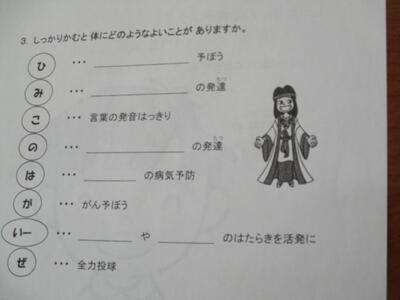 3. しっかりかむと体にどのようなよいことがありますか。
ひ ・・・ ＿＿＿＿＿＿ 予ぼう
み ・・・ ＿＿＿＿＿＿ の発達(たつ)
こ ・・・ 言葉の発音はっきり
の ・・・ ＿＿＿＿＿＿ の発達(たつ)
は ・・・ ＿＿＿ の病気予防
が ・・・ がん予ぼう
いー ・・・ ＿＿＿ や ＿＿＿＿ のはたらきを活発に
ぜ ・・・ 全力投球